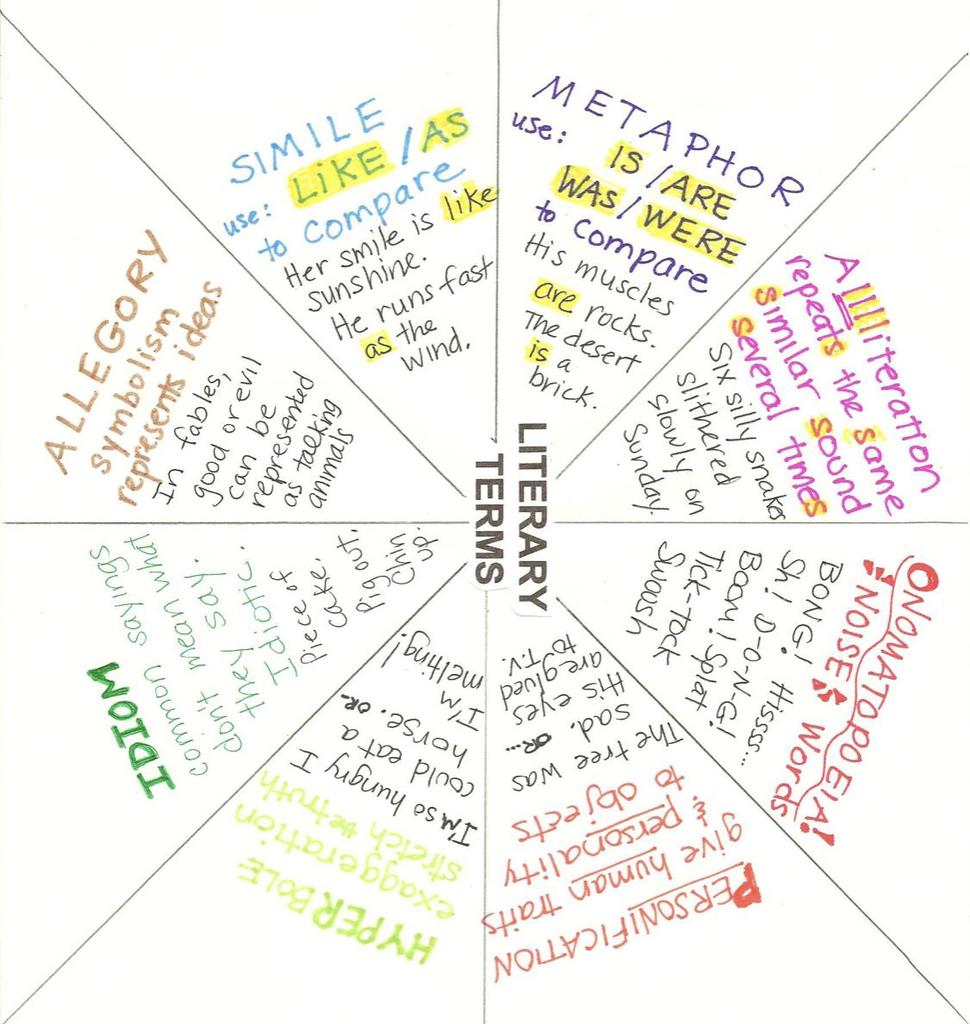 LITERARY
TERMS
SIMILE
use: LIKE / AS
to compare
Her smile is like
sunshine.
He runs fast
as the
wind.
METAPHOR
use: IS / ARE
WAS / WERE
to compare
His muscles
are rocks.
The desert
is a
brick.
Allllliteration
repeats the same
similar sound
several times
Six silly snakes
slithered
slowly on
Sunday.
ONOMATOPOEIA!
NOISE Words
BONG! Hissss...
Sh! D-O-N-G!
Boom! Splat
Tick-tock
Swoosh
PERSONIFICATION
give human traits
& personality
to objects
The tree was
sad. OR...
His eyes
are glued
to T.V.
HYPERBOLE
exaggeration
stretch the truth
I'm so hungry I
could eat a
horse. OR..
I'm
melting!
IDIOM
common sayings
don't mean what
they say.
Idiotic.
Piece of
cake.
Pig out.
Chin
up.
ALLEGORY
symbolism
represents ideas
In fables,
good or evil
can be
represented
as talking
animals